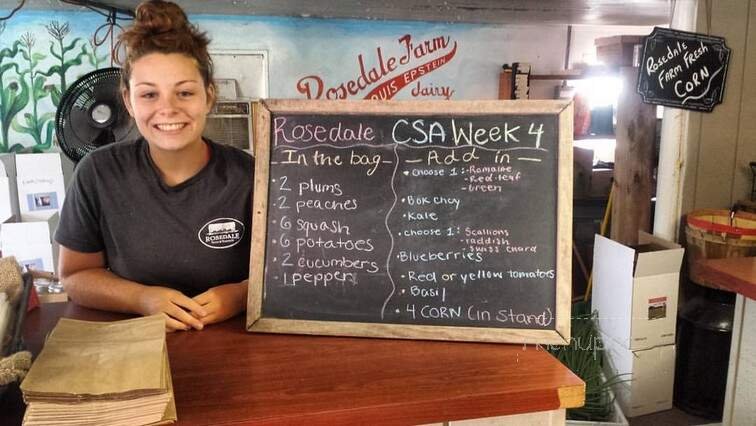 Rosedale Farm
LOUIS EPSTEIN
dairy
Rosedale
FARM FRESH
CORN
Rosedale
In the bag
2 plums
2 peaches
6 squash
6 potatoes
2 cucumbers
1 pepper
CSA Week 4
Add in
• choose 1: - Romaine
- Red leaf
- Green
• Bok choy
• Kale
• choose 1: Scallions
- raddish
- swiss chard
• Blueberries
• Red or yellow tomatoes
• Basil
• 4 CORN (in stand)
ROSEDALE